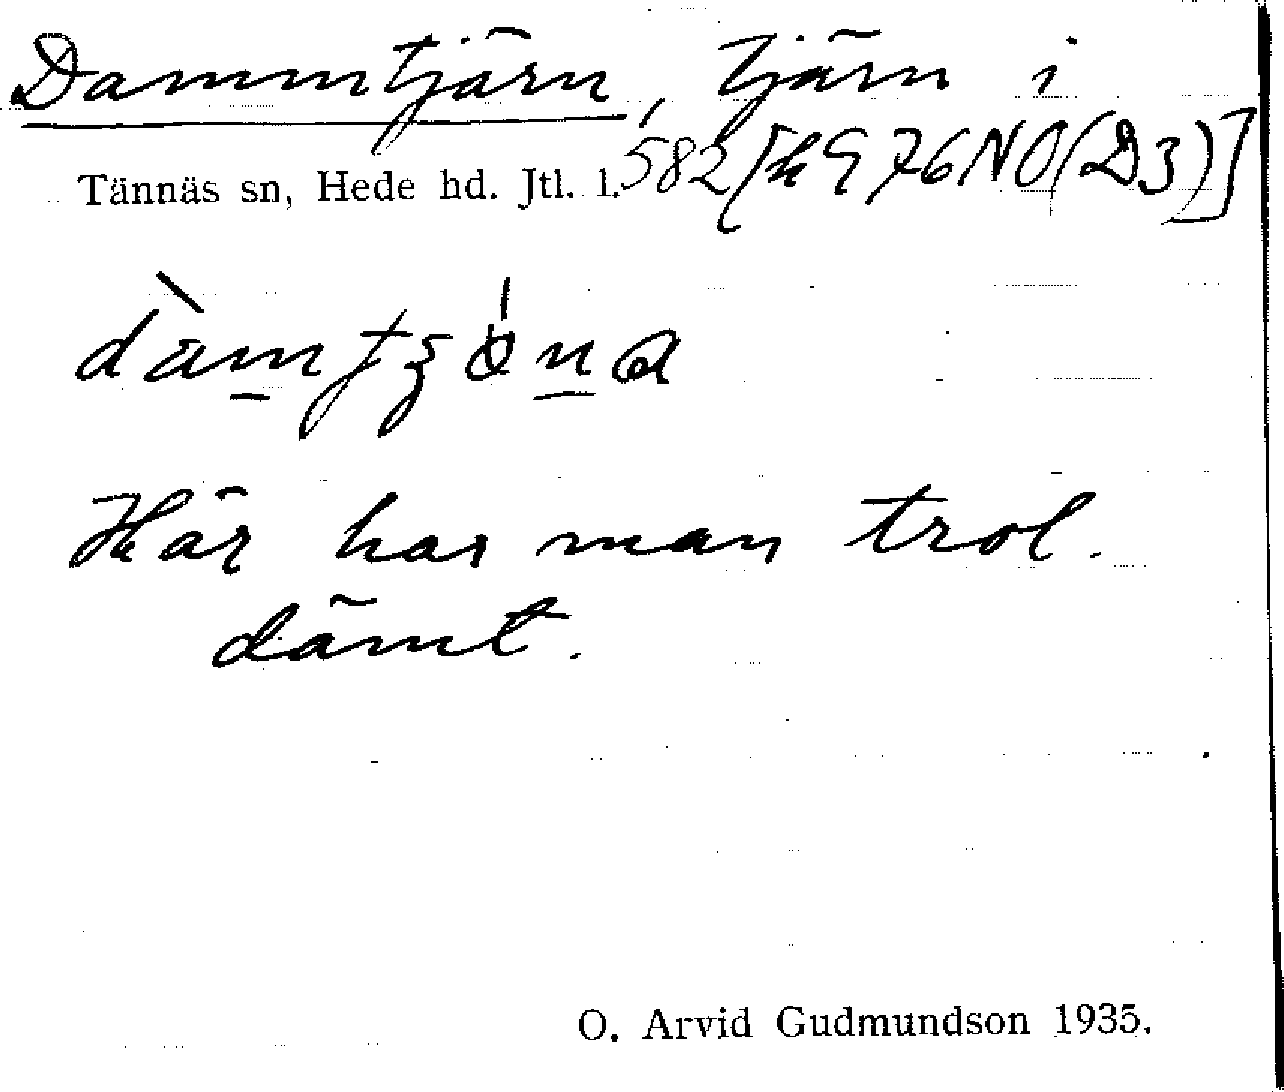 Dammtjärn, tjärn i
Tännäs sn, Hede hd. Jtl. l. 582 [kG76NO(D3)]
Här har man trol.
dämt.
O. Arvid Gudmundson 1935.